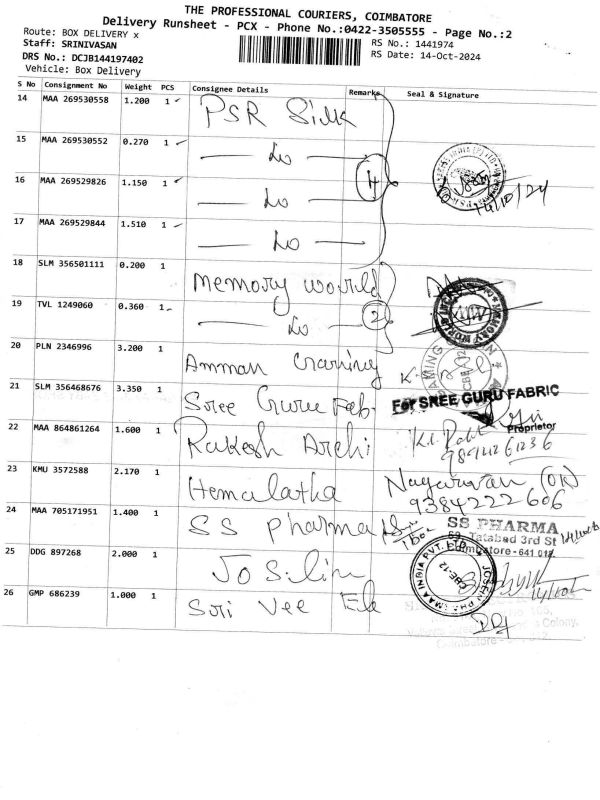 THE PROFESSIONAL COURIERS, COIMBATORE
Delivery Runsheet - PCX - Phone No.:0422-3505555 - Page No.:2
Route: BOX DELIVERY x
Staff: SRINIVASAN
DRS No.: DCJB144197402
Vehicle: Box Delivery
RS No.: 1441974
RS Date: 14-Oct-2024
S No Consignment No Weight PCS Consignee Details Remarks Seal & Signature
14 MAA 269530558 1.200 1 PSR Silk
15 MAA 269530552 0.270 1 Do
16 MAA 269529826 1.150 1 Do 4
17 MAA 269529844 1.510 1 Do
14/10/24
18 SLM 356501111 0.200 1 Memory world
19 TVL 1249060 0.360 1 Do 2
20 PLN 2346996 3.200 1 Amman
21 SLM 356468676 3.350 1 Sree Guru Fab
For SREE GURU FABRIC
Proprietor
22 MAA 864861264 1.600 1 Rakesh Archi
23 KMU 3572588 2.170 1 Hemalatha
9384222606
24 MAA 705171951 1.400 1 SS Pharmaa
SS PHARMA
Tatabad 3rd St
Coimbatore - 641 012
25 DDG 897268 2.000 1
26 GMP 686239 1.000 1 Sri Vee